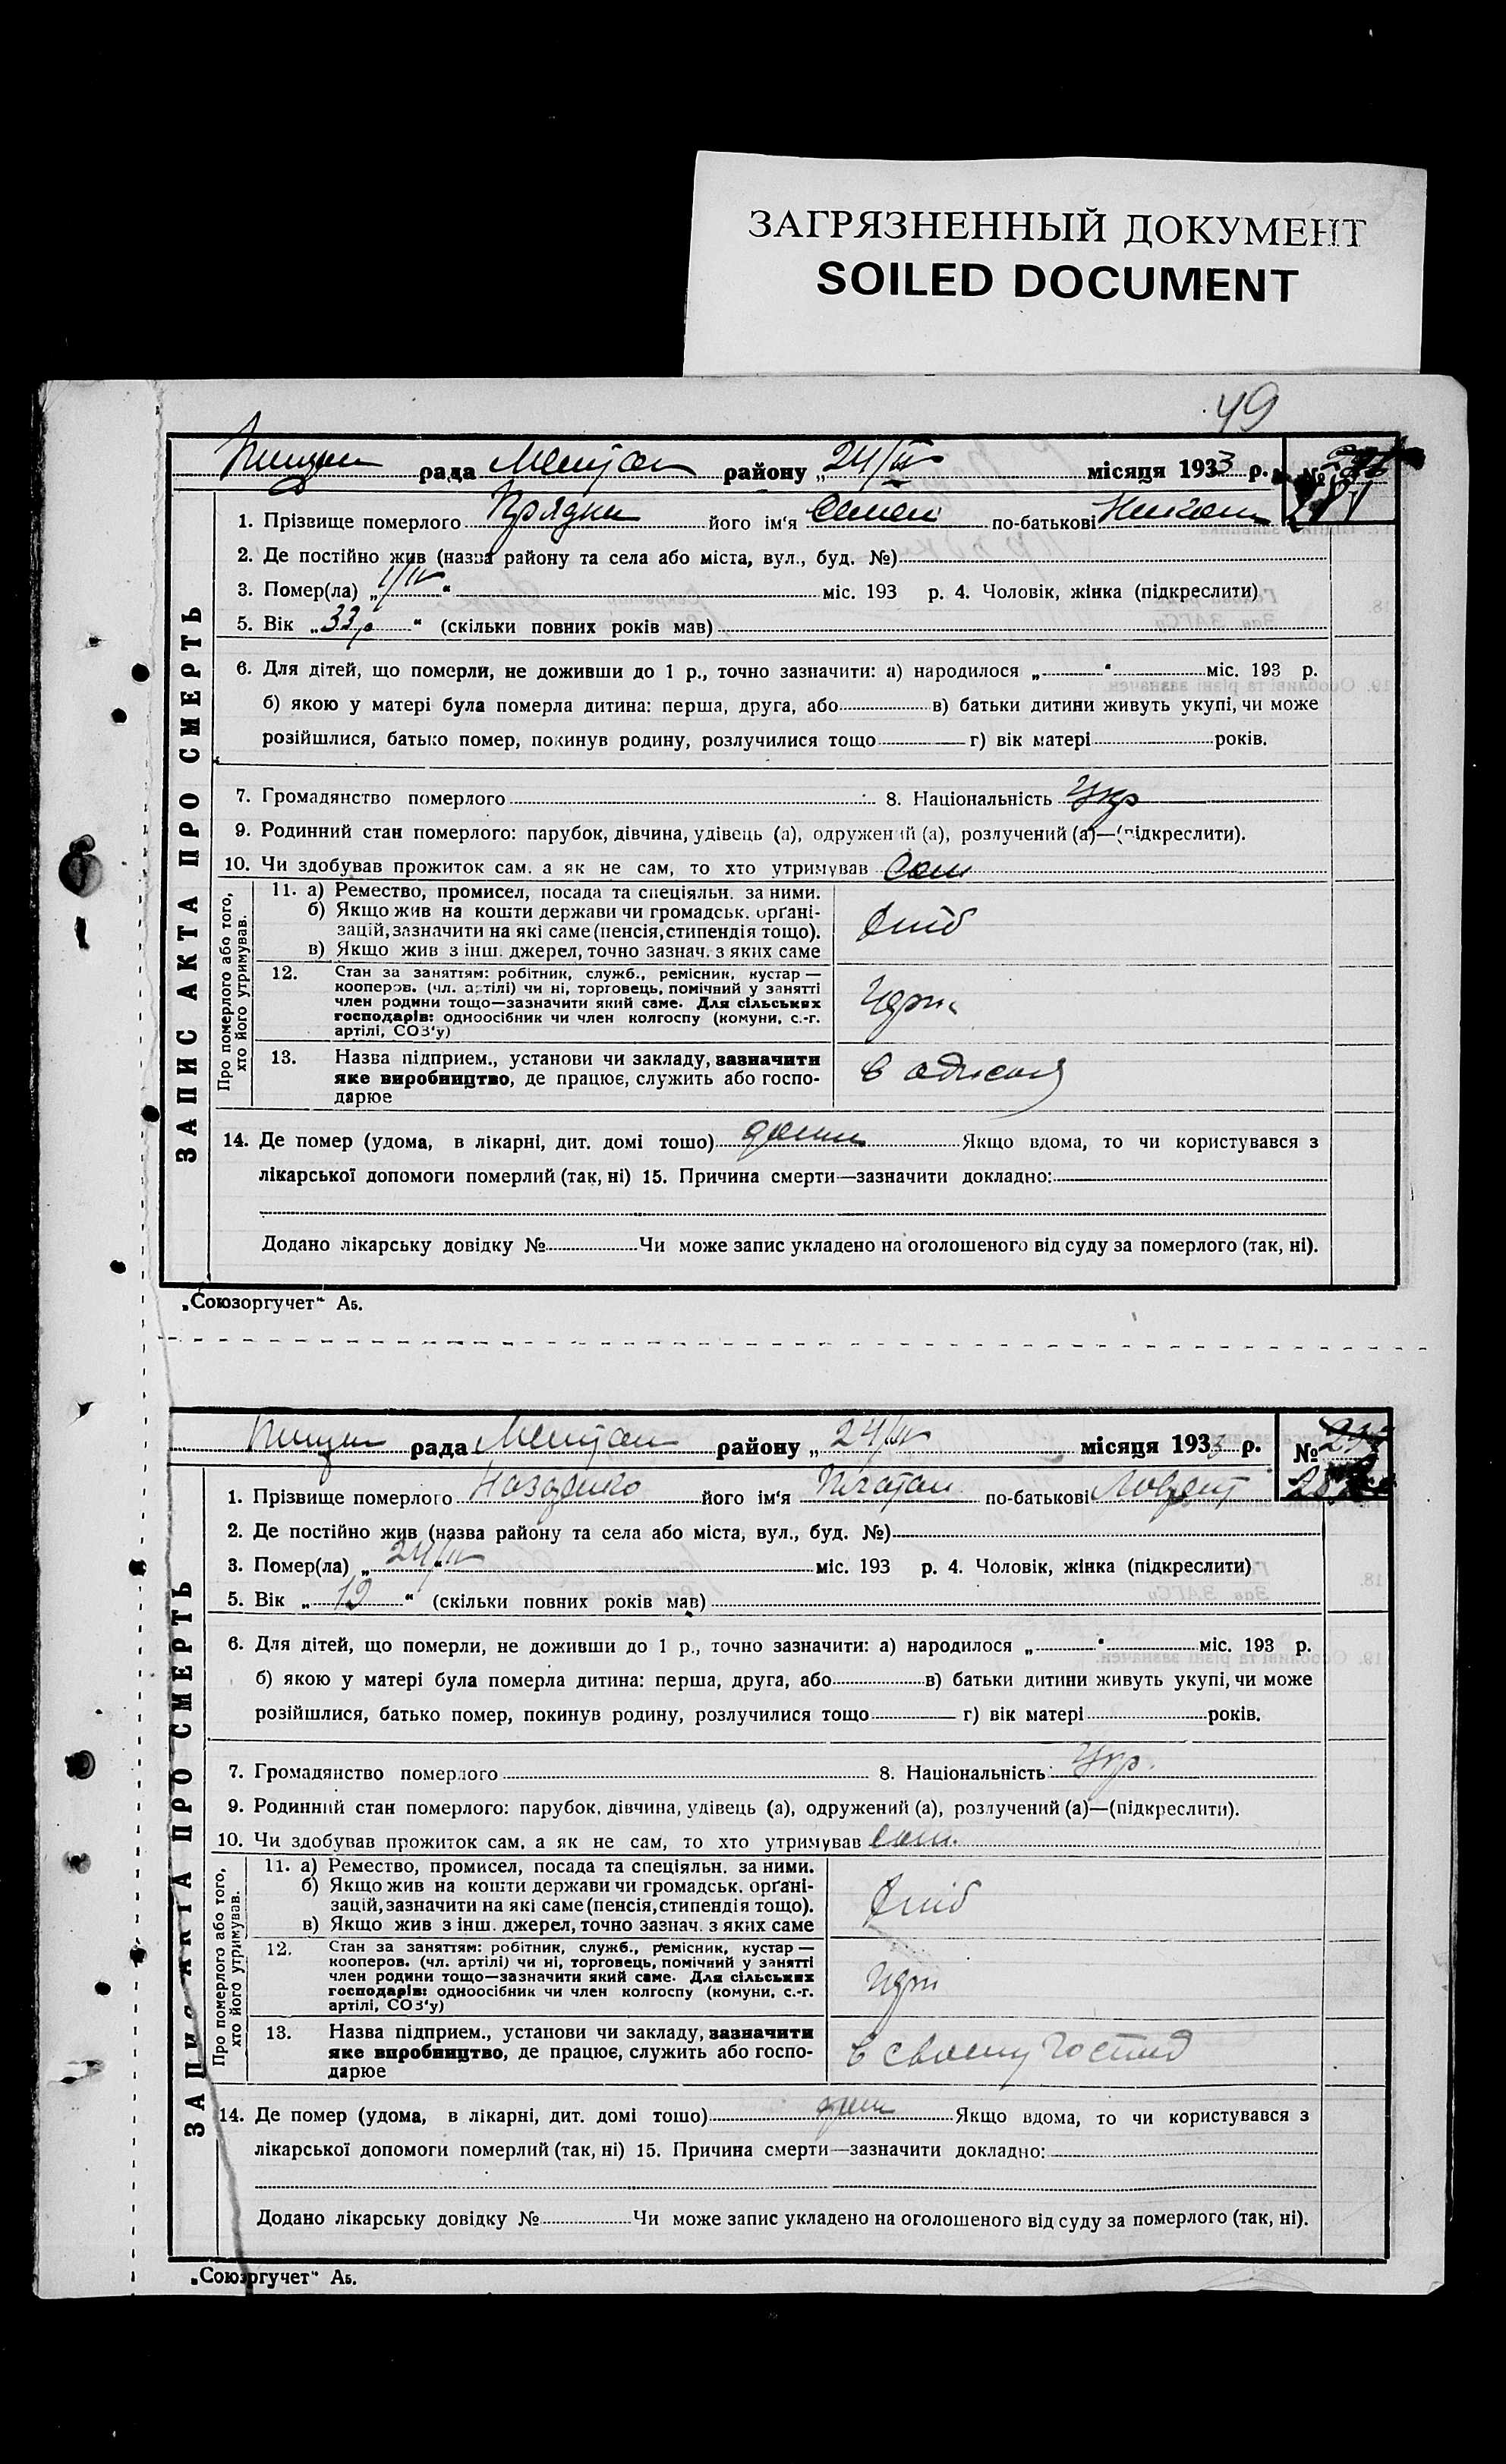 ЗАГРЯЗНЕННЫЙ ДОКУМЕНТ
SOILED DOCUMENT
49
рада район у „24/IV місяця 1933 р. №
1. Прізвище померлого Прядка його ім'я Семен по-батькові
2. Де постійно жив (назва району та села або міста, вул., буд. №)
3. Помер(ла) „1/IV“ міс. 193 р. 4. Чоловік, жінка (підкреслити)
5. Вік „33р“ (скільки повних років мав)
6. Для дітей, що померли, не доживши до 1 р., точно зазначити: а) народилося „ “ міс. 193 р.
б) якою у матері була померла дитина: перша, друга, або в) батьки дитини живуть укупі, чи може
розійшлися, батько помер, покинув родину, розлучилися тощо г) вік матері років.
7. Громадянство померлого 8. Національність Укр
9. Родинний стан померлого: парубок, дівчина, удівець (а), одружений (а), розлучений (а)—(підкреслити).
10. Чи здобував прожиток сам, а як не сам, то хто утримував Сам
ЗАПИС АКТА ПРО СМЕРТЬ
Про померлого або того,
хто його утримував.
11. а) Ремество, промисел, посада та спеціяльн. за ними.
б) Якщо жив на кошти держави чи громадськ. орґані-
зацій, зазначити на які саме (пенсія, стипендія тощо).
в) Якщо жив з інш. джерел, точно зазнач. з яких саме
12. Стан за заняттям: робітник, служб., ремісник, кустар —
кооперов. (чл. артілі) чи ні, торговець, помічний у занятті
член родини тощо—зазначити який саме. Для сільських
господарів: одноосібник чи член колгоспу (комуни, с.-г.
артілі, СОЗ'у)
13. Назва підприєм., установи чи закладу, зазначити
яке виробництво, де працює, служить або госпо-
дарює
14. Де помер (удома, в лікарні, дит. домі тошо) Якщо вдома, то чи користувався з
лікарської допомоги померлий (так, ні) 15. Причина смерти—зазначити докладно:
Додано лікарську довідку № Чи може запис укладено на оголошеного від суду за померлого (так, ні).
„Союзоргучет“ А5.
рада району „24/IV місяця 1933 р. №
1. Прізвище померлого його ім'я Платон по-батькові
2. Де постійно жив (назва району та села або міста, вул., буд. №)
3. Помер(ла) „24/IV“ міс. 193 р. 4. Чоловік, жінка (підкреслити)
5. Вік „ “ (скільки повних років мав)
6. Для дітей, що померли, не доживши до 1 р., точно зазначити: а) народилося „ “ міс. 193 р.
б) якою у матері була померла дитина: перша, друга, або в) батьки дитини живуть укупі, чи може
розійшлися, батько помер, покинув родину, розлучилися тощо г) вік матері років.
7. Громадянство померлого 8. Національність Укр.
9. Родинний стан померлого: парубок, дівчина, удівець (а), одружений (а), розлучений (а)—(підкреслити).
10. Чи здобував прожиток сам, а як не сам, то хто утримував Сам.
ЗАПИС АКТА ПРО СМЕРТЬ
Про померлого або того,
хто його утримував.
11. а) Ремество, промисел, посада та спеціяльн. за ними.
б) Якщо жив на кошти держави чи громадськ. орґані-
зацій, зазначити на які саме (пенсія, стипендія тощо).
в) Якщо жив з інш. джерел, точно зазнач. з яких саме
12. Стан за заняттям: робітник, служб., ремісник, кустар —
кооперов. (чл. артілі) чи ні, торговець, помічний у занятті
член родини тощо—зазначити який саме. Для сільських
господарів: одноосібник чи член колгоспу (комуни, с.-г.
артілі, СОЗ'у)
13. Назва підприєм., установи чи закладу, зазначити
яке виробництво, де працює, служить або госпо-
дарює
в своему господ
14. Де помер (удома, в лікарні, дит. домі тошо) Якщо вдома, то чи користувався з
лікарської допомоги померлий (так, ні) 15. Причина смерти—зазначити докладно:
Додано лікарську довідку № Чи може запис укладено на оголошеного від суду за померлого (так, ні).
„Союзоргучет“ А5.